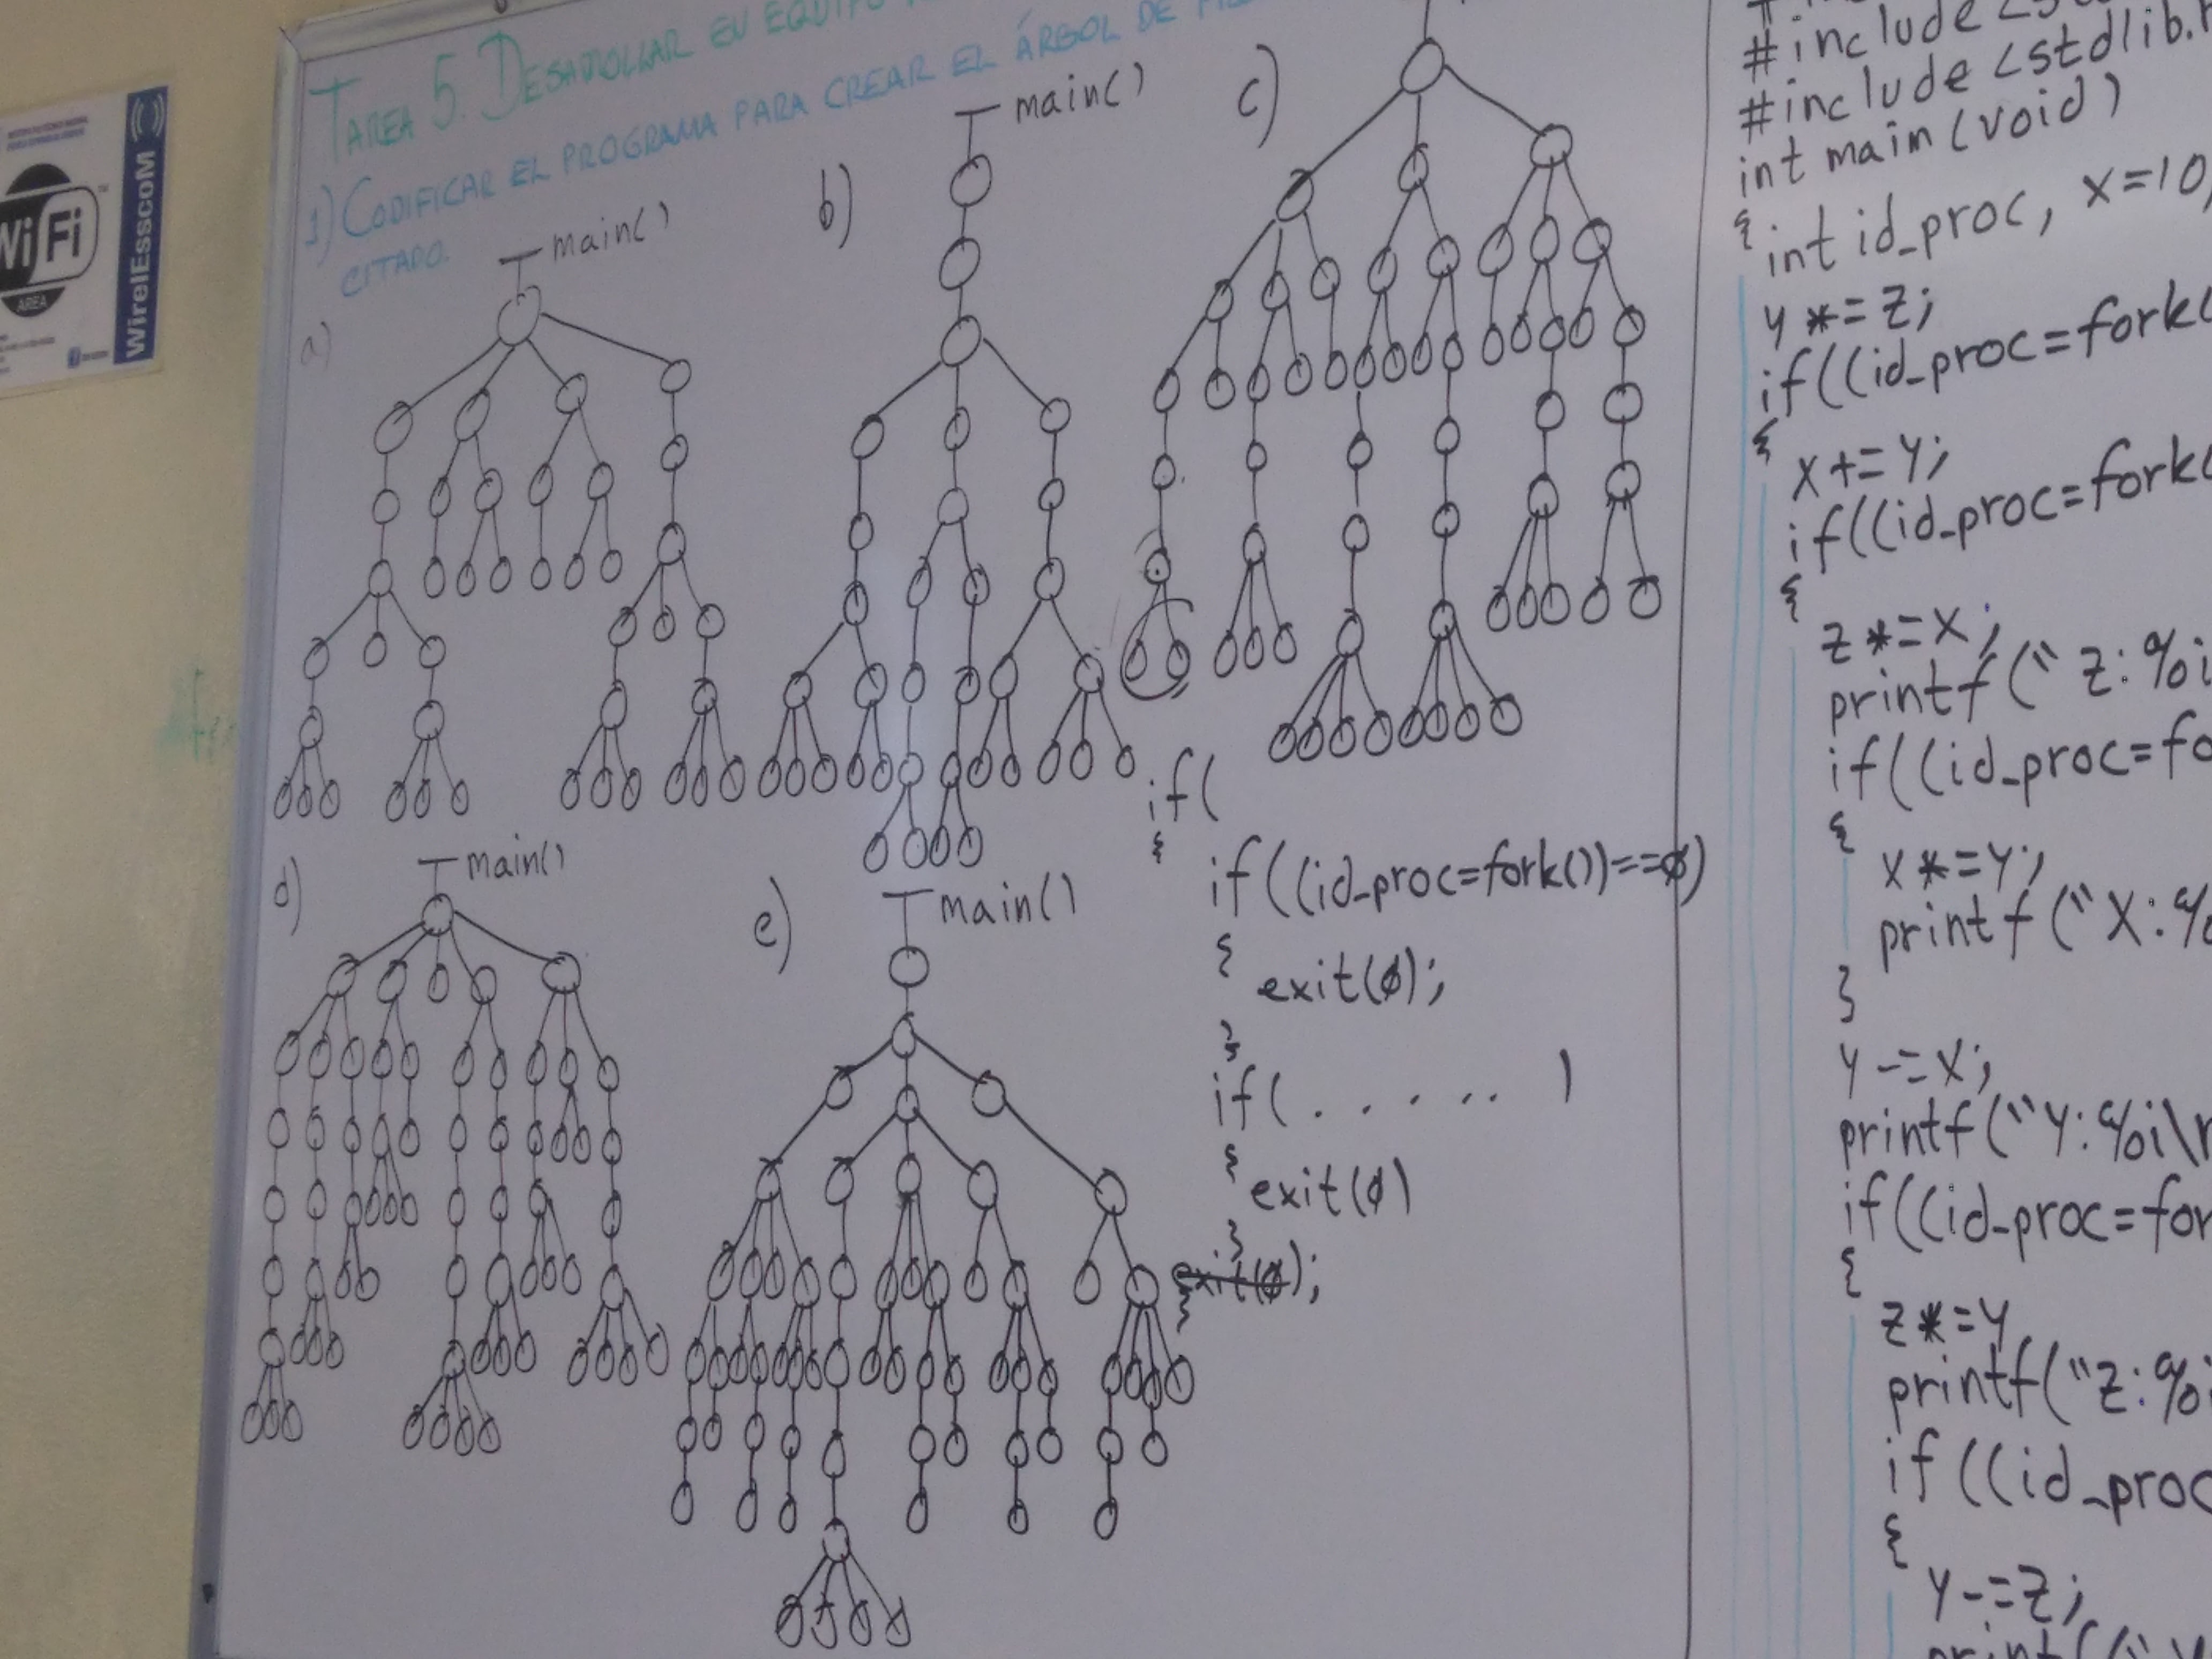 TAREA 5. DESARROLLAR EN EQUIPO
1) CODIFICAR EL PROGRAMA PARA CREAR EL ÁRBOL DE
CITADO.
a)
main()
b)
main()
c)
d)
main()
e)
main()
if(
{
if((id_proc=fork())==0)
{
exit(0);
}
if( . . . . . )
{
exit(0)
}
exit(0);
}
#include <st
#include <stdlib.h
int main(void)
{
int id_proc, x=10,
y *= z;
if((id_proc=fork(
{
x += y;
if((id_proc=fork(
{
z *= x;
printf("z: %i
if((id_proc=fo
{
x *= y;
printf("X: %
}
y -= x;
printf("Y: %i\n
if((id_proc=for
{
z *= y
printf("z: %i
if((id_proc
{
y -= z;
WiFi
AREA
WirelEsscoM